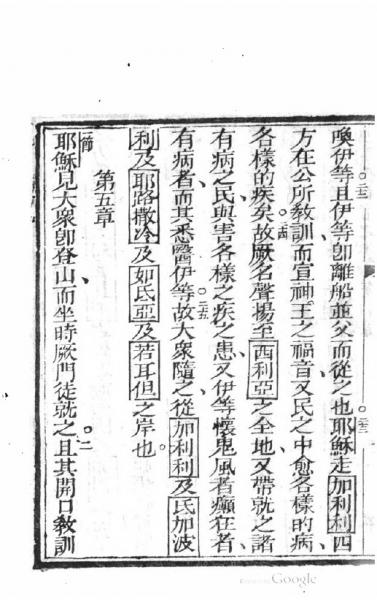 喚伊等且伊等卽離船並父而從之也耶穌走加利利四
方在公所教訓而宣神王之福音又民之中愈各樣的病
各樣的疾矣故厥名聲揚至西利亞之全地又帶就之諸
有病之民與害各樣之疾之患又伊等懷鬼風者癲狂者
有病者而其悉醫伊等故大衆隨之從加利利及氐加波
利及耶路撒冷及如氐亞及若耳但之岸也
第五章
一節
耶穌見大衆卽登山而坐時厥門徒就之且其開口教訓
Google